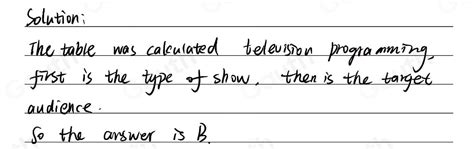 Solution:
The table was calculated television programming,
first is the type of show, then is the target
audience.
So the answer is B.